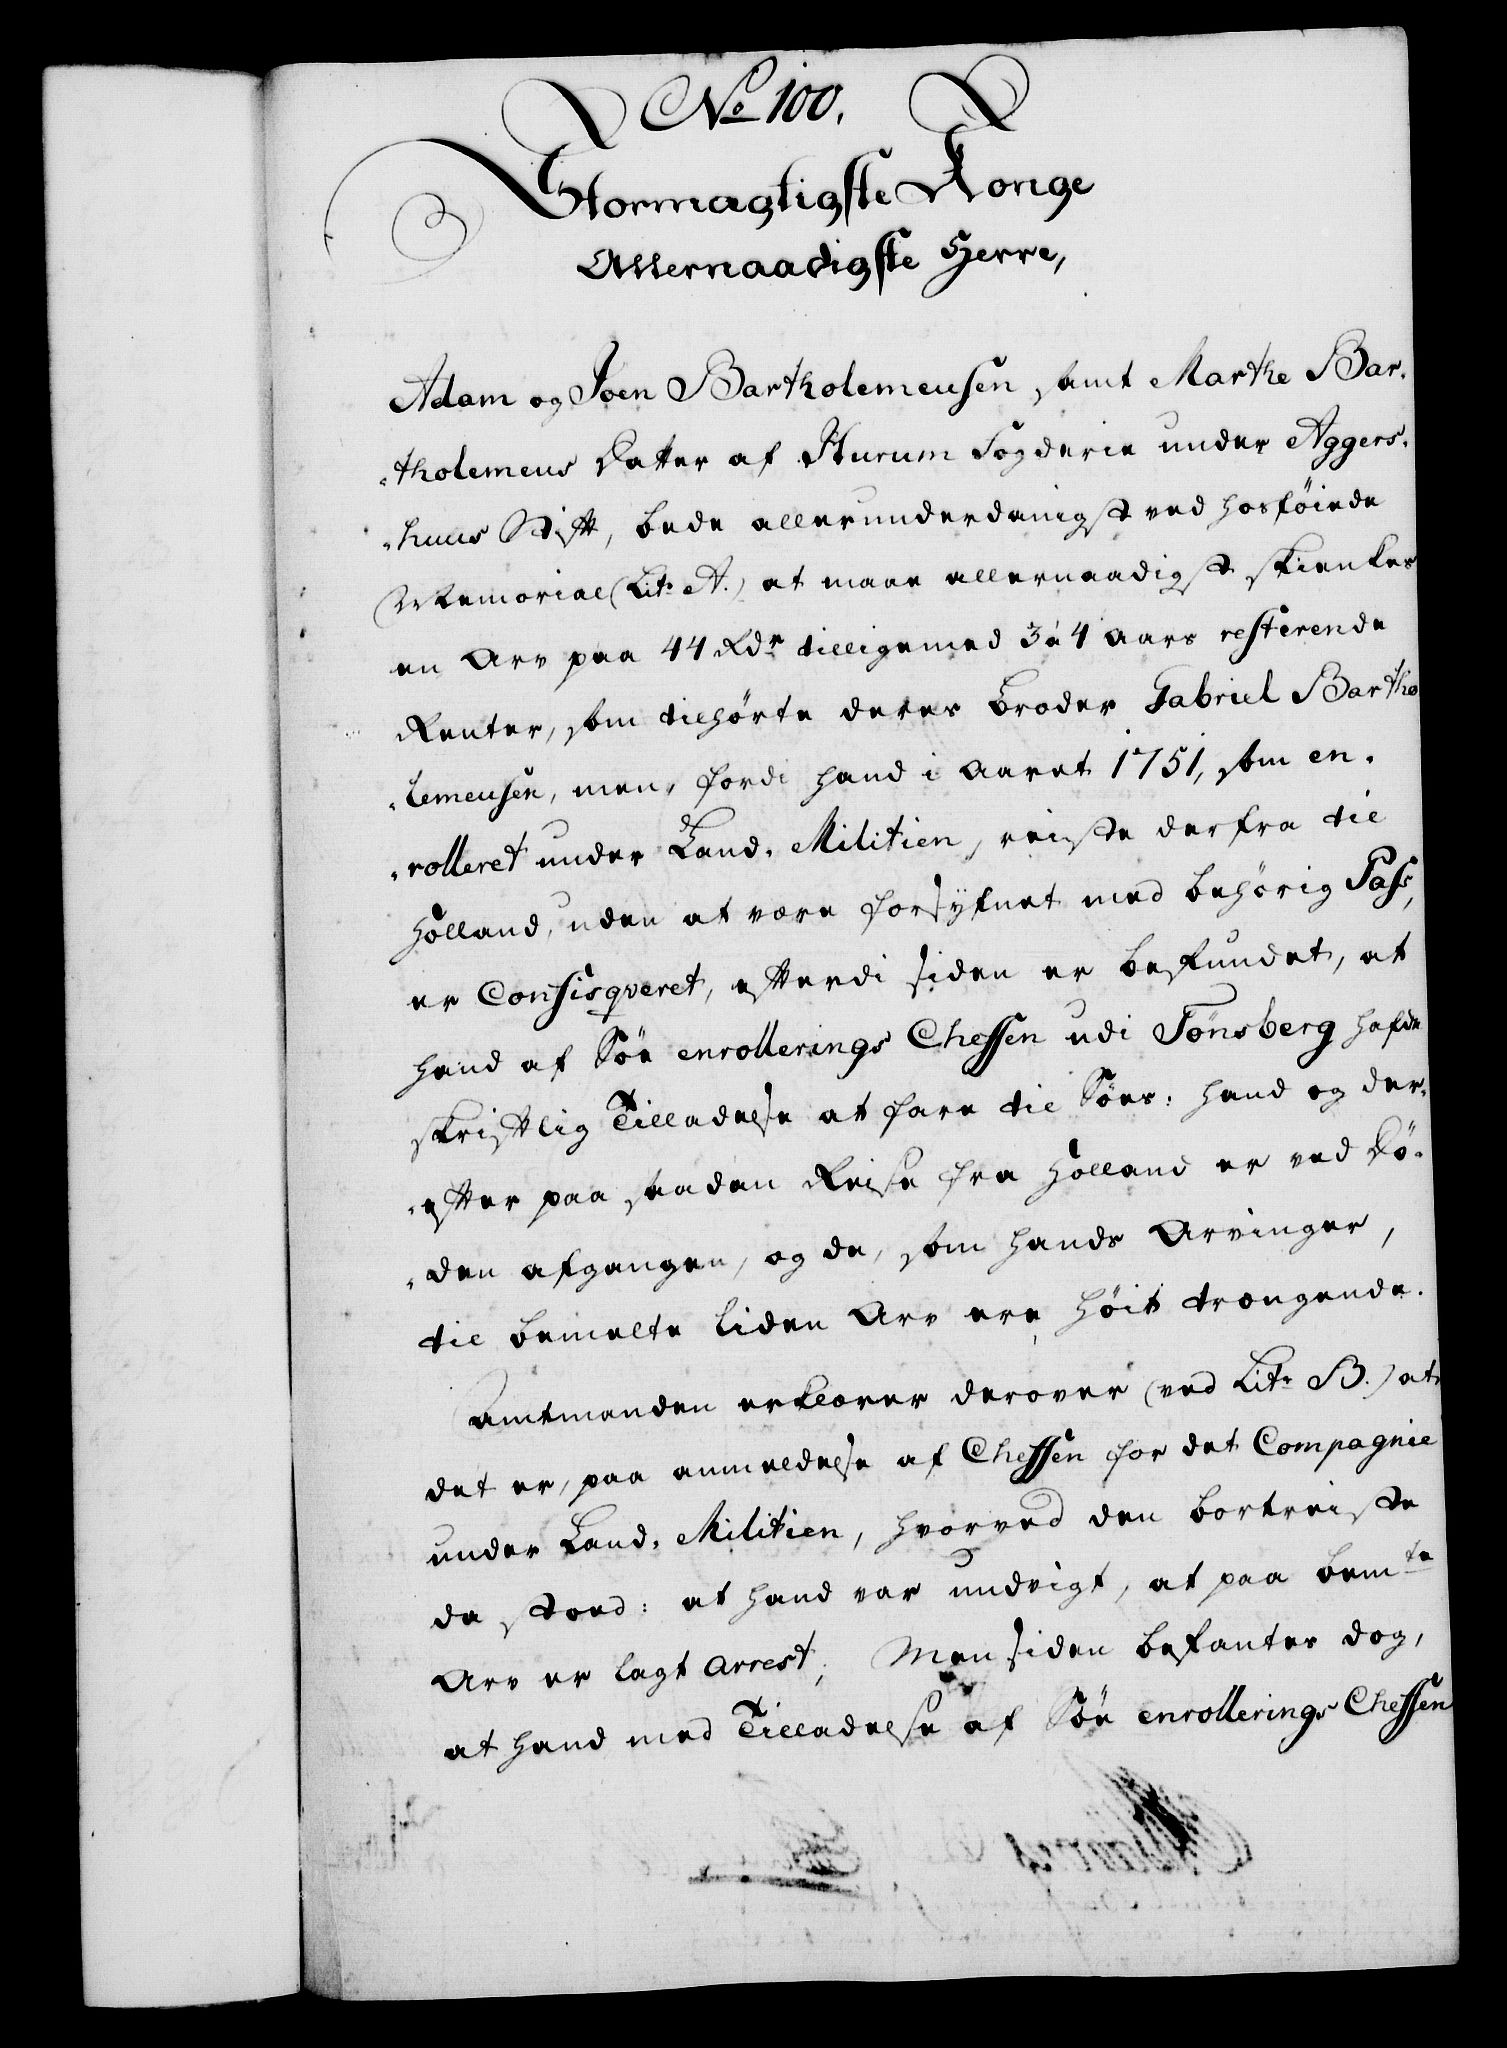 No 100.
Stormagtigste Konge
Allernaadigste Herre,
Adam og Joen Bartholemeusen, samt Marthe Bar-
-tholemeus Datter af Hurum Fogderie under Aggers-
-huus Stift, bede allerunderdanigst ved hosføiede
Memorial (Litr A.) at maae allernaadigst skienkes
en Arv paa 44 Rdr tilligemed 3 á 4 Aars resterende
Renter, som tilhørte deres Broder Gabriel Bartho
-lemeusen, men, fordi hand i Aaret 1751, som en-
-rolleret under Land-Militien, reiste derfra til
Holland, uden at være forsyfnet med behørig Pass,
er Confisqveret, efterdi siden er befundet, at
hand af Søe enrollerings Cheffen udi Tønsberg hafde
skriftlig Tilladelse at fare til Søes: hand og der-
-efter paa saadan Reise fra Holland er ved Dø-
-den afgangen, og de, som hands Arvinger,
til bemelte liden Arv ere høit trængende.
Amtmanden erklærer derover (ved Litr B.) at
det er, paa anmeldelse af Cheffen for det Compagnie
under Land-Militien, hvorved den bortreiste
da stoed: at hand var undvigt, at paa bemte
Arv er lagt Arrest; Men siden befantes dog,
at hand med Tilladelse af Søe enrollerings Cheffen